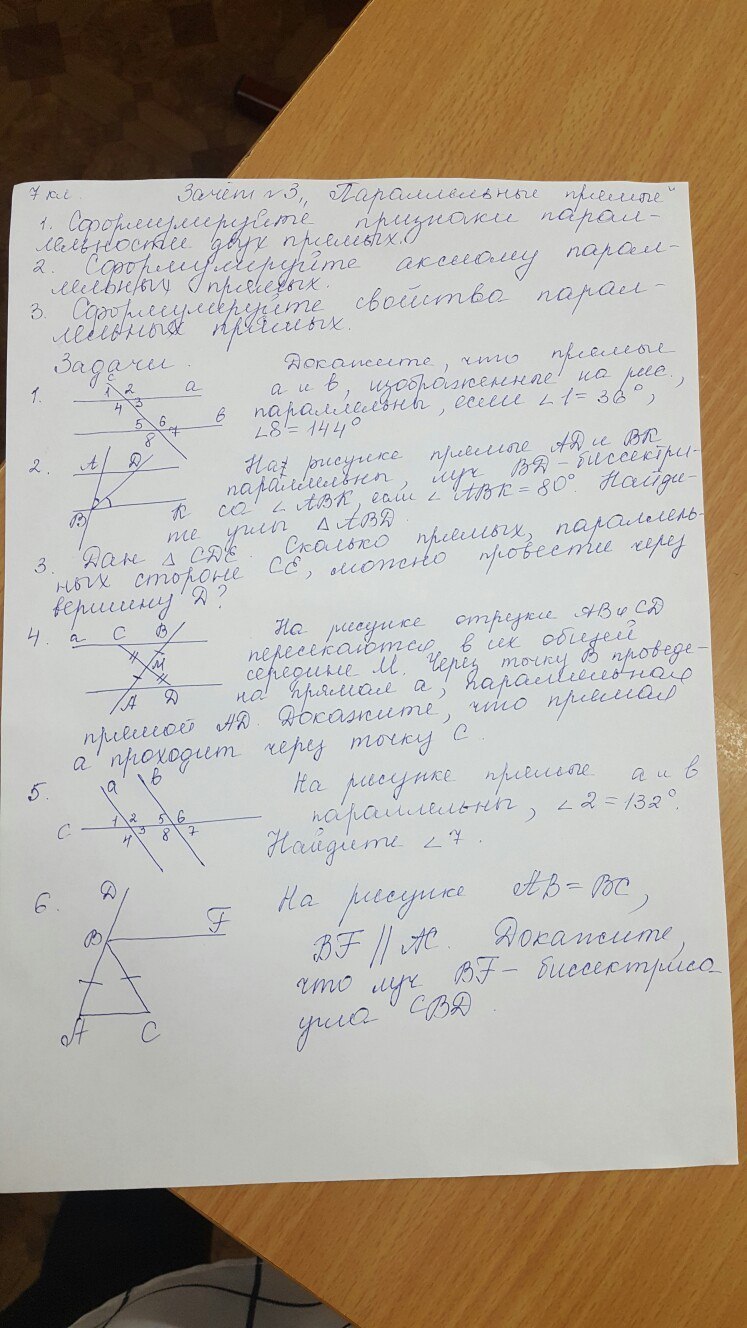 7 кл. Зачёт №3 „Параллельные прямые"
1. Сформулируйте признаки парал-
лельности двух прямых.
2. Сформулируйте аксиому парал-
лельных прямых.
3. Сформулируйте свойства парал-
лельных прямых.
Задачи.
1. Докажите, что прямые
а и в, изображенные на рис.,
параллельны, если ∠1 = 36°,
∠8 = 144°
c
1 2 a
4 3
5 6 в
8 7
2. На рисунке прямые AD и BK
параллельны, луч BD – биссектри-
са ∠ABK, если ∠ABK = 80°. Найди-
те углы △ABD.
A D
B K
3. Дан △CDE. Сколько прямых, параллель-
ных стороне CE, можно провести через
вершину D?
4. На рисунке отрезки AB и CD
пересекаются в их общей
середине M. Через точку B проведе-
на прямая a, параллельная
прямой AD. Докажите, что прямая
a проходит через точку C.
a C B
M
A D
5. На рисунке прямые а и в
параллельны, ∠2 = 132°.
Найдите ∠7.
a в
c 1 2 5 6
4 3 8 7
6. На рисунке AB = BC,
BF || AC. Докажите,
что луч BF – биссектриса
угла CBD.
D
B F
A C